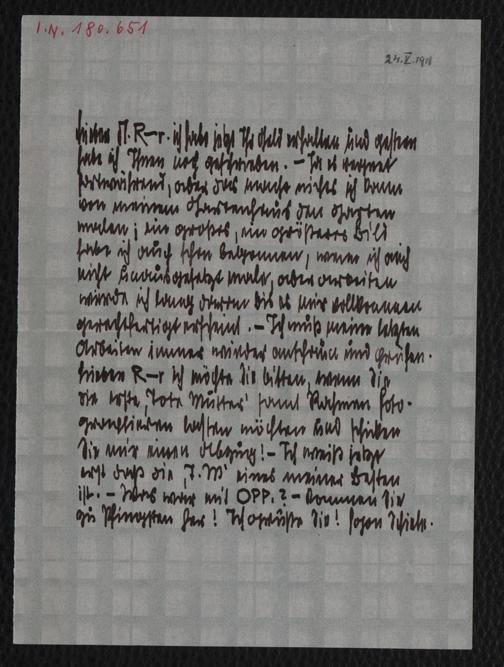 I.N. 180.651
24.V.1911
Lieber A. R–r. ich habe jetzt Ihr Geld erhalten und gestern
habe ich Ihnen noch geschrieben. – Ja es regnet
fortwährend, aber das macht nichts ich kann
von meinem Gartenhaus den Garten
malen; ein großes, ein größeres Bild
habe ich auch schon begonnen, wenn ich auch
nicht unausgesetzt male, aber arbeiten
würde ich lang daran bis es mir vollkommen
gerechtfertigt erscheint. – Ich muß meine letzten
Arbeiten immer wieder anschaun und prüfen.
Lieber R–r ich möchte Sie bitten, wenn Sie
die erste, 'Tote Mutter' samt Rahmen foto-
grafieren lassen möchten und schicken
Sie mir einen Abzug! – Ich weiß jetzt
erst daß die 'T.M' eines meiner Besten
ist. – Was war mit OPP.? – Kommen Sie
zu Pfingsten her! Ich grüße Sie! Egon Schiele.